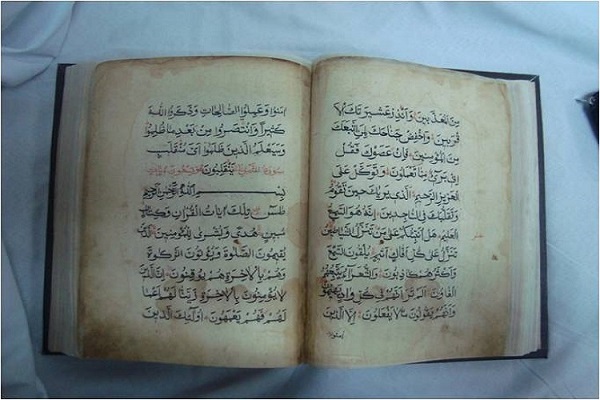 مِنَ الْمُعَذَّبِينَ وَاَنْذِرْ عَشِيرَتَكَ الْاَ
قْرَبِينَ وَاخْفِضْ جَنَاحَكَ لِمَنِ اتَّبَعَكَ
مِنَ الْمُؤْمِنِينَ فَاِنْ عَصَوْكَ فَقُلْ
اِنِّى بَرِىءٌ مِمَّا تَعْمَلُونَ وَتَوَكَّلْ عَلَى
الْعَزِيزِ الرَّحِيمِ الَّذِى يَرَاكَ حِينَ تَقُومُ
وَتَقَلُّبَكَ فِى السَّاجِدِينَ اِنَّهُ هُوَ السَّمِيعُ
الْعَلِيمُ هَلْ اُنَبِّئُكُمْ عَلَى مَنْ تَنَزَّلُ الشَّيَاطِينُ
تَنَزَّلُ عَلَى كُلِّ اَفَّاكٍ اَثِيمٍ يُلْقُونَ السَّمْعَ
وَاَكْثَرُهُمْ كَاذِبُونَ وَالشُّعَرَاءُ يَتَّبِعُهُمُ
الْغَاوُونَ اَلَمْ تَرَ اَنَّهُمْ فِى كُلِّ وَادٍ يَهِيمُونَ
وَاَنَّهُمْ يَقُولُونَ مَا لَا يَفْعَلُونَ اِلَّا الَّذِينَ
امنوا
اٰمَنُوا وَعَمِلُوا الصَّالِحَاتِ وَذَكَرُوا اللهَ
كَثِيرًا وَانْتَصَرُوا مِنْ بَعْدِ مَا ظُلِمُوا
وَسَيَعْلَمُ الَّذِينَ ظَلَمُوا اَىَّ مُنْقَلَبٍ
سورة النمل يَنْقَلِبُونَ
بِسْمِ اللهِ الرَّحْمٰنِ الرَّحِيمِ
طس تِلْكَ اٰيَاتُ الْقُرْاٰنِ وَكِتَابٍ
مُبِينٍ هُدًى وَبُشْرَى لِلْمُؤْمِنِينَ الَّذِينَ
يُقِيمُونَ الصَّلٰوةَ وَيُؤْتُونَ الزَّكٰوةَ
وَهُمْ بِالْاٰخِرَةِ هُمْ يُوقِنُونَ اِنَّ الَّذِينَ
لَا يُؤْمِنُونَ بِالْاٰخِرَةِ زَيَّنَّا لَهُمْ اَعْمَا
لَهُمْ فَهُمْ يَعْمَهُونَ اُولٰئِكَ الَّذِينَ